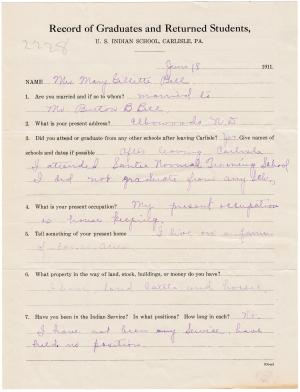 Record of Graduates and Returned Students,
U. S. INDIAN SCHOOL, CARLISLE, PA.
2228
June 18 1911.
NAME Mrs Mary Gillette Bell
1. Are you married and if so to whom? married to
Mr Burton B Bell
2. What is your present address? Elbowoods N. D
3. Did you attend or graduate from any other schools after leaving Carlisle? Yes Give names of
schools and dates if possible After leaving Carlisle
I attended Santee Normal Training School
I did not graduate from any
4. What is your present occupation? My present occupation
is house keeping
5. Tell something of your present home I live on a farm
of acres
6. What property in the way of land, stock, buildings, or money do you have?
I have land cattle and horses
7. Have you been in the Indian Service? In what positions? How long in each? No.
I have not been any service, have
held no position